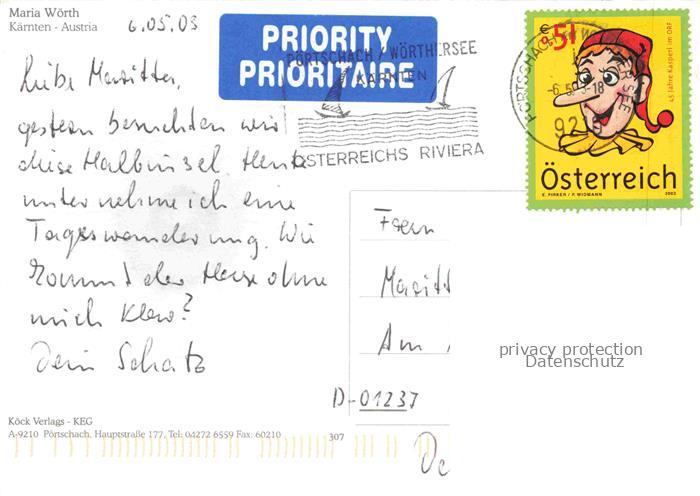 Maria Wörth
Kärnten - Austria
6.05.03
PRIORITY
PRIORITAIRE
PÖRTSCHACH / WÖRTHERSEE
KÄRNTEN
ÖSTERREICHS RIVIERA
-6.5.03-18
€ 0,51
45 Jahre Kasperl im ORF
Österreich
E. PIRKER / P. WIDMANN
2003
Liebe Maritta,
gestern besuchten wir
diese Halbinsel. Heute
unternehme ich eine
Tageswanderung. Wie
kommt der Hase ohne
mich klar?
Dein Schatz
Frau
Maritt
Am
privacy protection
Datenschutz
D-01237
De
Köck Verlags - KEG
A-9210 Pörtschach, Hauptstraße 177, Tel: 04272 6559 Fax: 60210
307